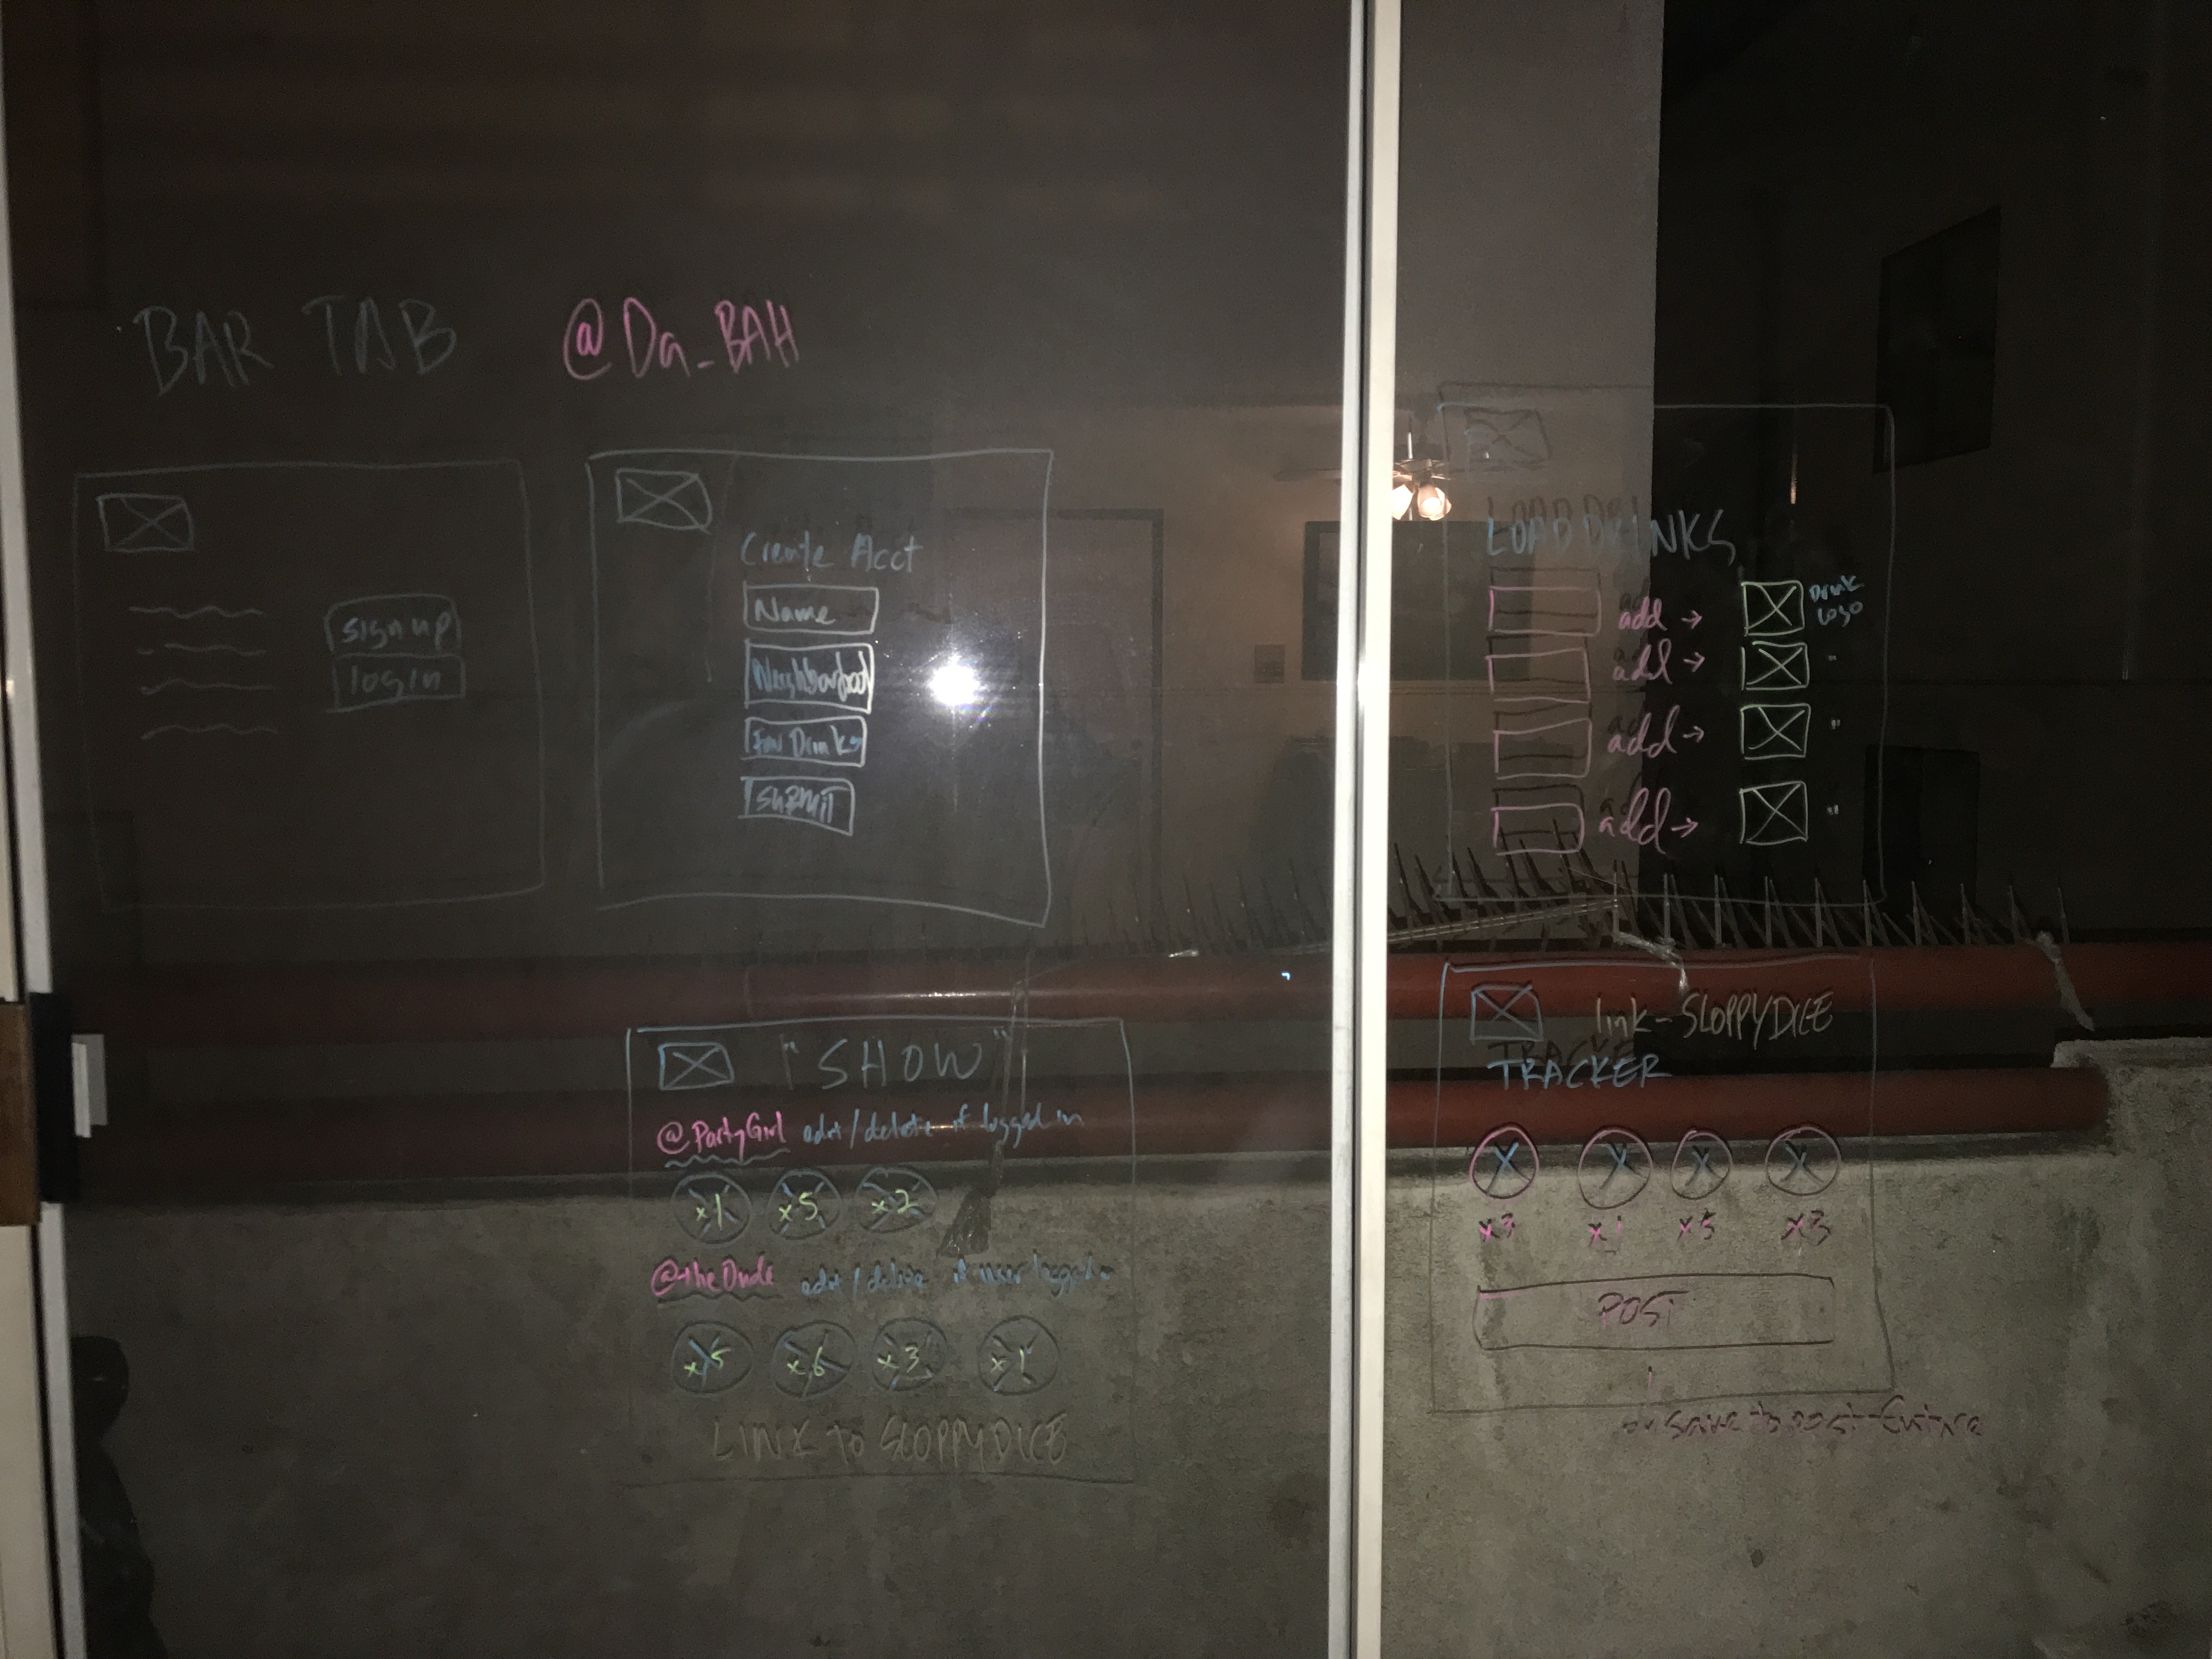 BAR TAB @Da_BAH
sign up
login
Create Acct
Name
Neighborhood
Fav Drinks
SUBMIT
LOAD DRINKS
add → Drink Logo
add → "
add → "
add → "
"SHOW"
@PartyGirl edit/delete if logged in
x1 x5 x2
@theDude edit/delete if user logged in
x5 x6 x3 x1
LINK to SLOPPYDICE
link - SLOPPYDICE
TRACKER
x3 x1 x5 x3
POST
save to post